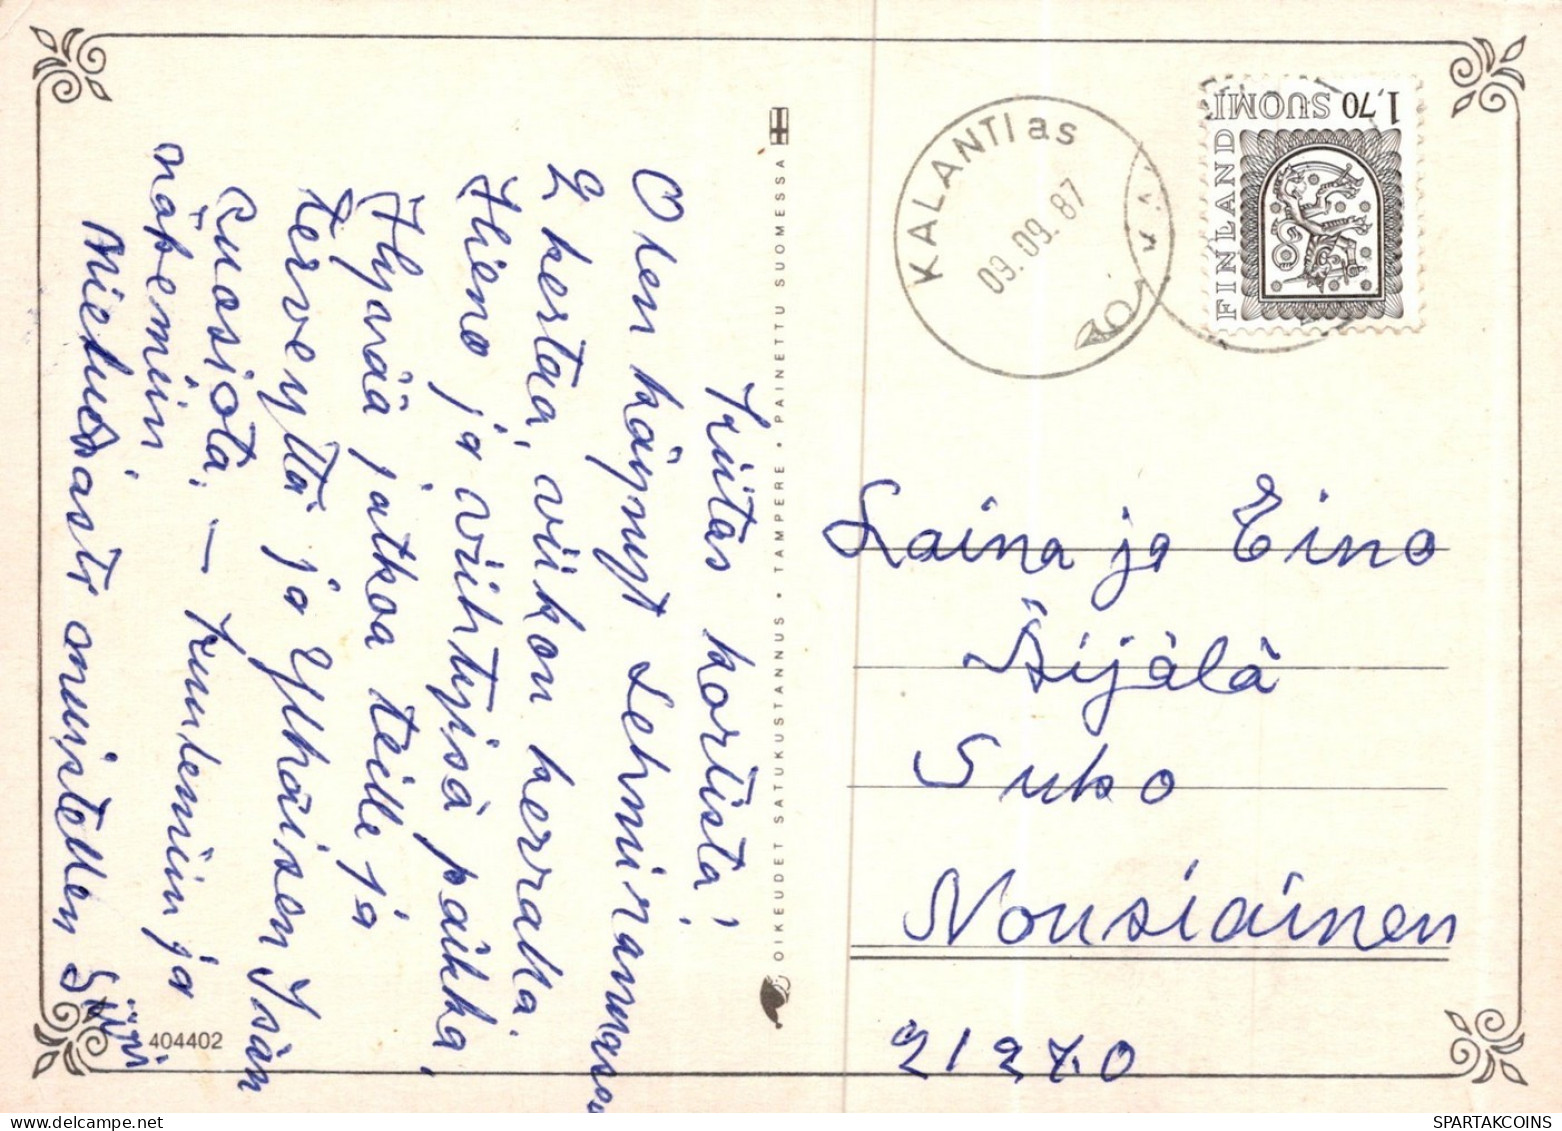 Kiitos kortista!
Olen käynyt Lehmirannassa
2 kertaa, viikon kerralla.
Hieno ja viihtyisä paikka.
Hyvää jatkoa teille ja
terveyttä ja Ylhäisen Isän
Suosiota. – Kuulemiin ja
näkemiin
Mieluisasti muistellen Siiri
404402
OIKEUDET SATUKUSTANNUS • TAMPERE • PAINETTU SUOMESSA
KALANTI as
09.09.87
1,70 SUOMI
FINLAND
Laina ja Eino
Äijälä
Suko
Nousiainen
21270
SPARTAKCOINS